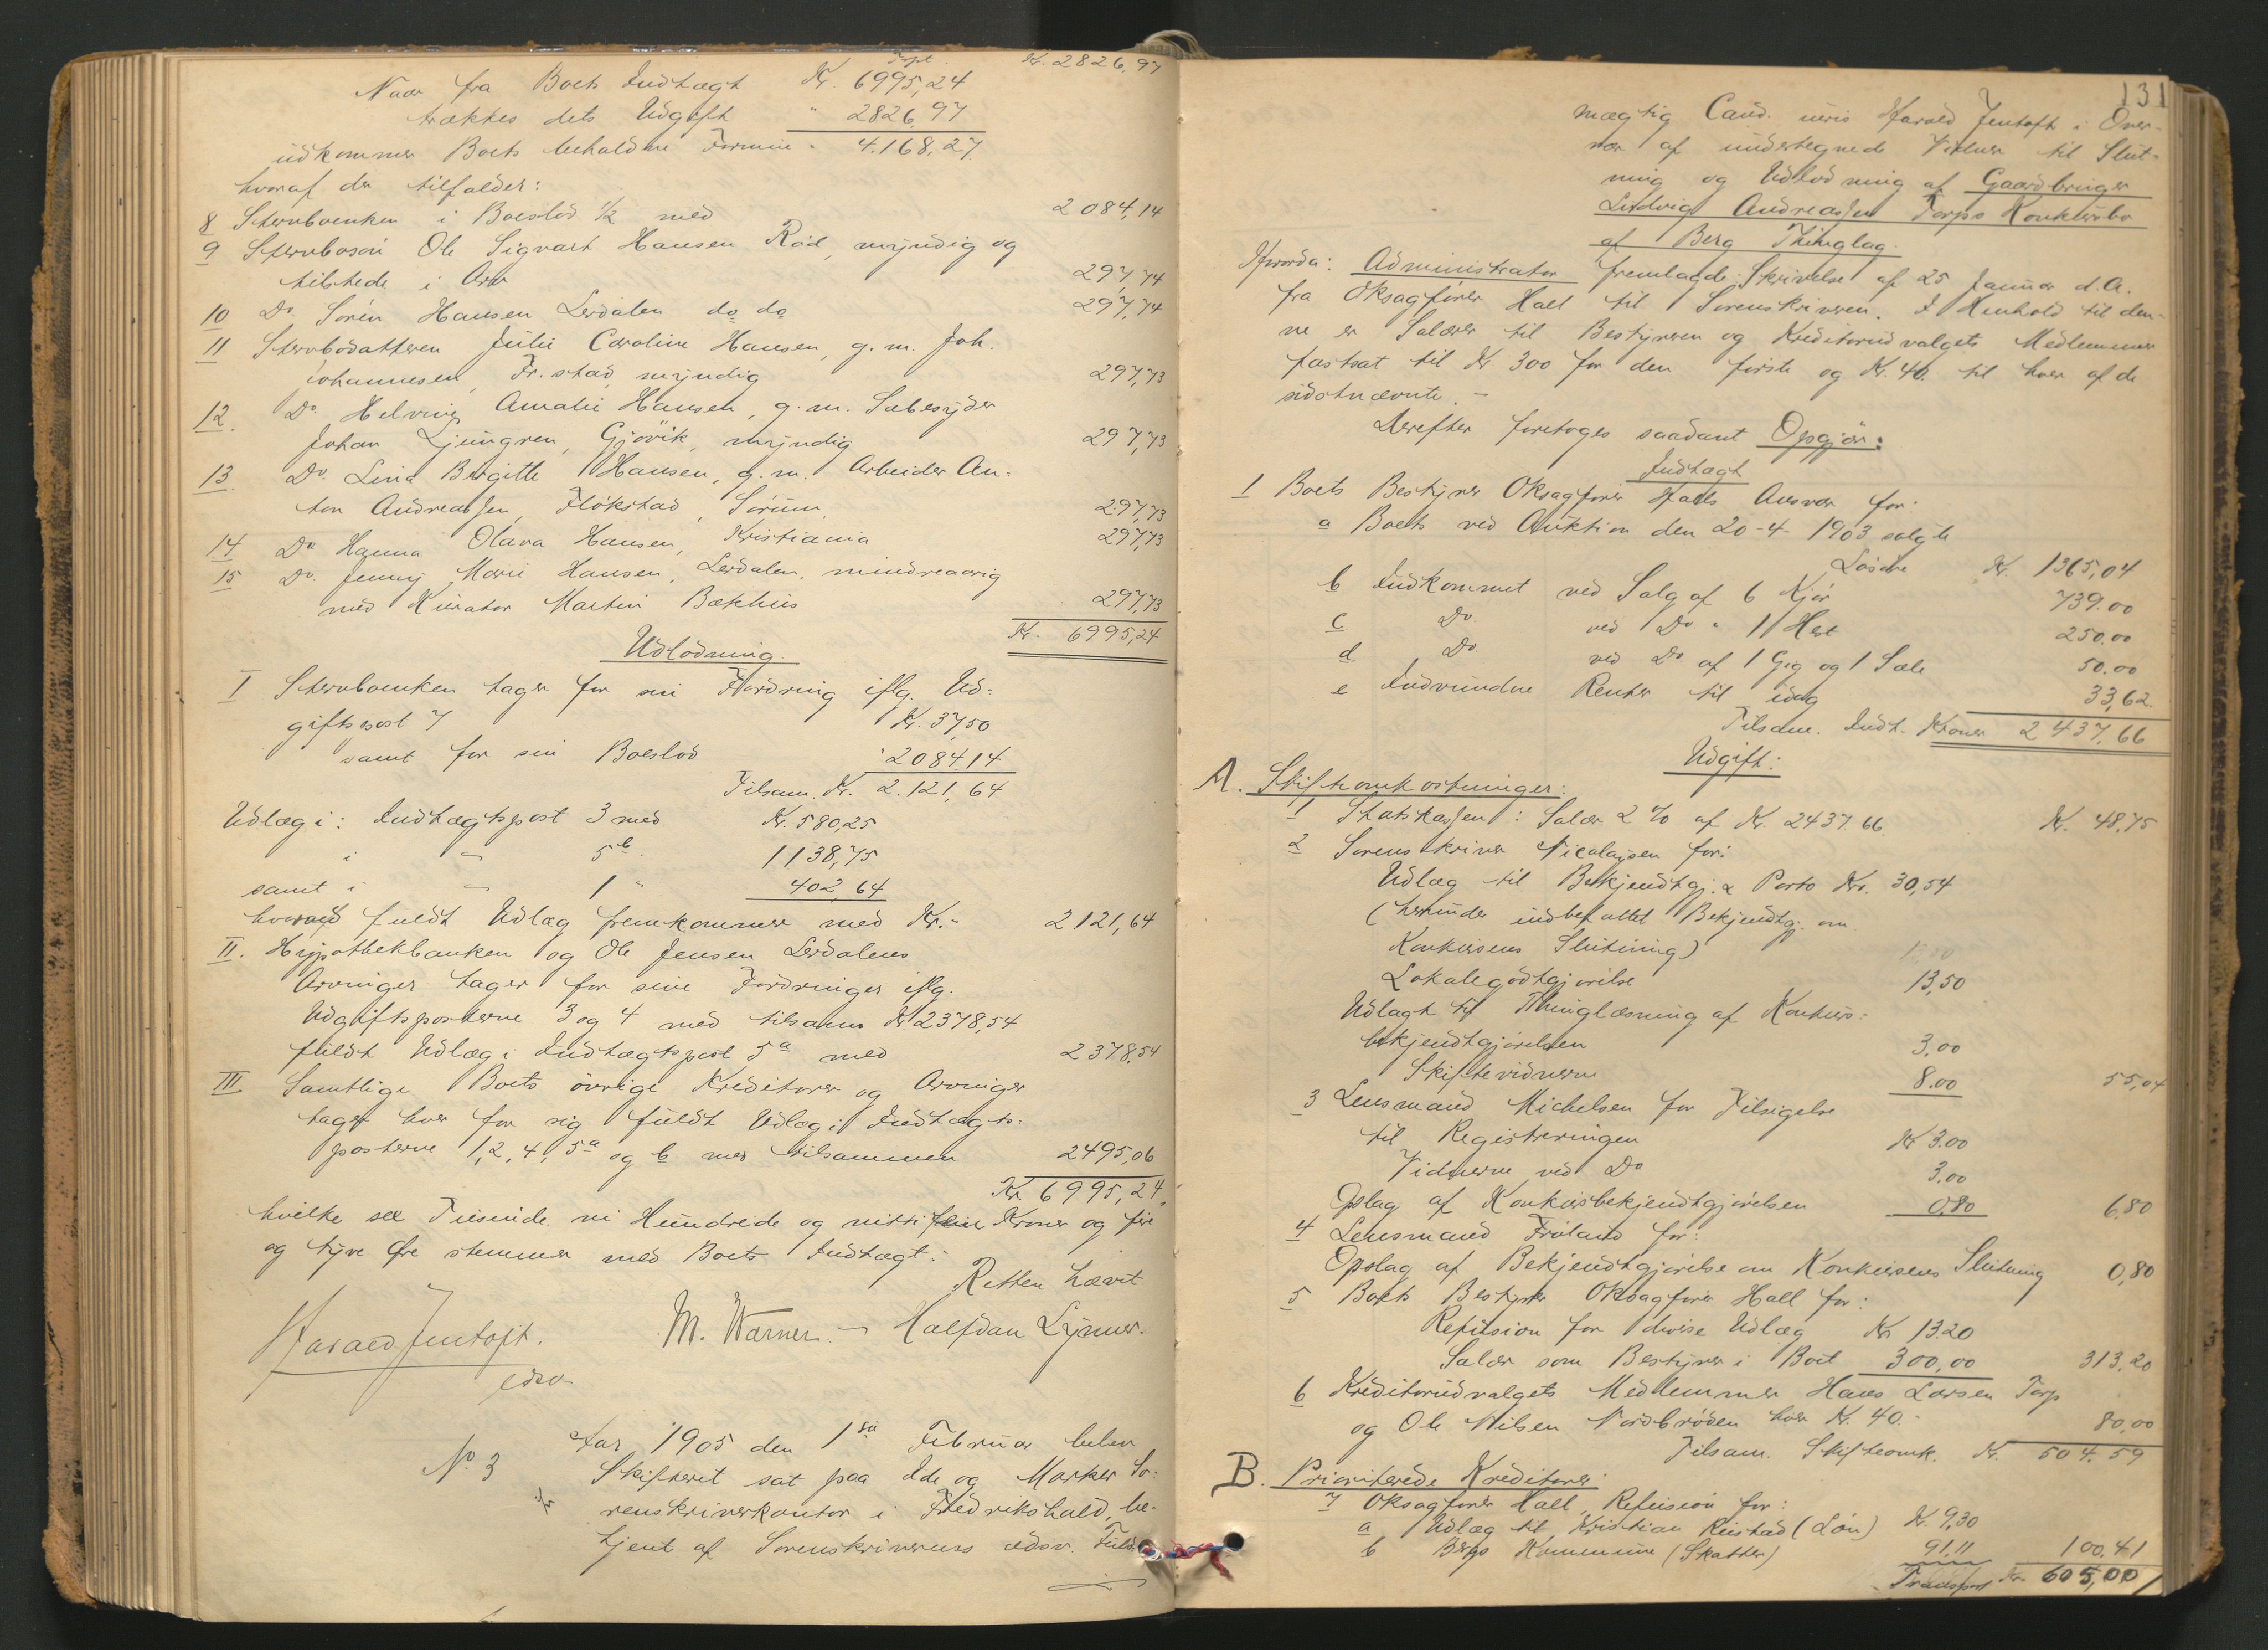 Trpt. Kr. 2826,97
Naar fra Boets Indtægt Kr. 6995,24
trækkes dets Udgift " 2826,97
udkommer Boets beholdne Formue " 4.168,27
hvoraf der tilfalder:
8 Sterboenken i Boeslod 1/2 med 2084,14
9 Sterbosøn Ole Sigvart Hansen Rød, myndig og
tilstede i Arv 297,74
10 Do. Sörén Hansen Lerdalen do do 297,74
11 Stervbodatteren Julie Caroline Hansen, g. m. Joh.
Johannesen, Fr.stad, myndig 297,73
12. Do. Helvine Amalie Hansen, g. m. Sæbesyder
Johan Ljungren, Gjövik, myndig 297,73
13. Do. Lina Birgitte Hansen, g. m. Arbeider An-
ton Andreassen, Flökstad, Sörum, 297,73
14 Do Hanna Olava Hansen, Kristiania 297,73
15 Do. Jenny Marie Hansen, Lerdalen, mindreaarig
med Kurator Martin Bækhus 297,73
Kr. 6995,24
Udlodning
I Stervboenken tager for sin Fordring iflg. Ud-
giftspost 7 Kr. 37,50
samt for sin Boeslod " 2084,14
Tilsam. Kr. 2.121,64
Udlæg i: Indtægtspost 3 med Kr. 580,25
i " 5b 1138,75
samt i " 1 " 402,64
hvorved fuldt Udlæg fremkommer med Kr. 2121,64
II. Hypothekbanken og Ole Jensen Lerdalens
Arvinger tager for sine Fordringer iflg.
Udgiftsposterne 3 og 4 med tilsamm. Kr. 2378,54
fuldt Udlæg i Indtægtspost 5a med 2378,54
III Samtlige Boets övrige Kreditorer og Arvinger
tager hver for sig fuldt Udlæg i Indtægts-
posterne 1, 2, 4, 5a og b med tilsammen 2495,06
Kr. 6995,24
hvilke sex Tusinde ni Hundrede og nitti fem Kroner og fire
og tyve Øre stemmer med Boets Indtægt.
Retten hævet
Harald Jentoft. M. Warner. Halfdan Lynner.
edsv
No 3 Aar 1905 den 1ste Februar blev
Skifteret sat paa Ide og Marker So-
renskriverkontor i Fredrikshald, be-
tjent af Sorenskriverens edsv. Fuld-
131
mægtig Cand. juris Harald Jentoft i Over-
vær af undertegnede Vidner til Slut-
ning og Udlodning af Gaardbruger
Ludvig Andreassen Torps Konkursbo
af Berg Thinglag.
Hvorda: Administrator fremlagde Skrivelse af 25 Januar d. A.
fra Oksagfører Hall til Sorenskriveren. I Henhold til den-
ne er Salærer til Bestyreren og Kreditorudvalgets Medlemmer
fastsat til Kr 300 for den første og Kr. 40. til hver af de
sidstnævnte. -
Derefter foretoges saadant Opgjör:
Indtægt
1 Boets Bestyrer Oksagfører Halls Ansvar for:
a Boets ved Auktion den 20-4-1903 solgte
Lösöre Kr. 1365,04
b Indkommet ved Salg af 6 Kjör 739.00
c Do. ved Do. " 1 Hest 250.00
d Do ved Do af 1 Gig og 1 Sæle 50.00
e Indvundne Renter til idag 33,62
Tilsam. Indt. Kroner 2437,66
Udgift:
A. Skifteomkostninger:
1 Statskassen: Salær 2 % af Kr. 2437.66. Kr. 48,75
2 Sorenskriver Nicolaysen for:
Udlæg til Bekjendtgj. & Porto Kr. 30,54
(herunder indbefattet Bekjendtgj. om
Konkursens Slutning)
Lokalegodtgjørelse 13,50
Udlagt til Thinglæsning af Konkurs-
bekjendtgjörelsen 3,00
Skiftevidnerne 8.00 55,04
3 Lensmand Michelsen for Tilsigelse
til Registreringen Kr 3.00
Vidnerne ved Do 3,00
Opslag af Konkursbekjendtgjörelsen 0,80 6,80
4 Lensmand Fröland for:
Opslag af Bekjendtgjørelse om Konkursens Slutning 0,80
5 Boets Bestyrer Oksagfører Hall for:
Refusion for diverse Udlæg Kr 13.20
Salær som Bestyrer i Boet 300,00 313,20
6 Kreditorudvalgets Medlemmer Hans Larsen Torp
og Ole Nilsen Nordbröden hver Kr. 40.- 80,00
Tilsam. Skifteomk. Kr. 504.59
B. Prioriterede Kreditorer:
7 Oksagfører Hall, Refusion for:
a Udlæg til Kristian Rustad (Løn) Kr. 9,30
b Bergs Kommune (Skatter) 91.11 100.41
Transport Kr. 605,00